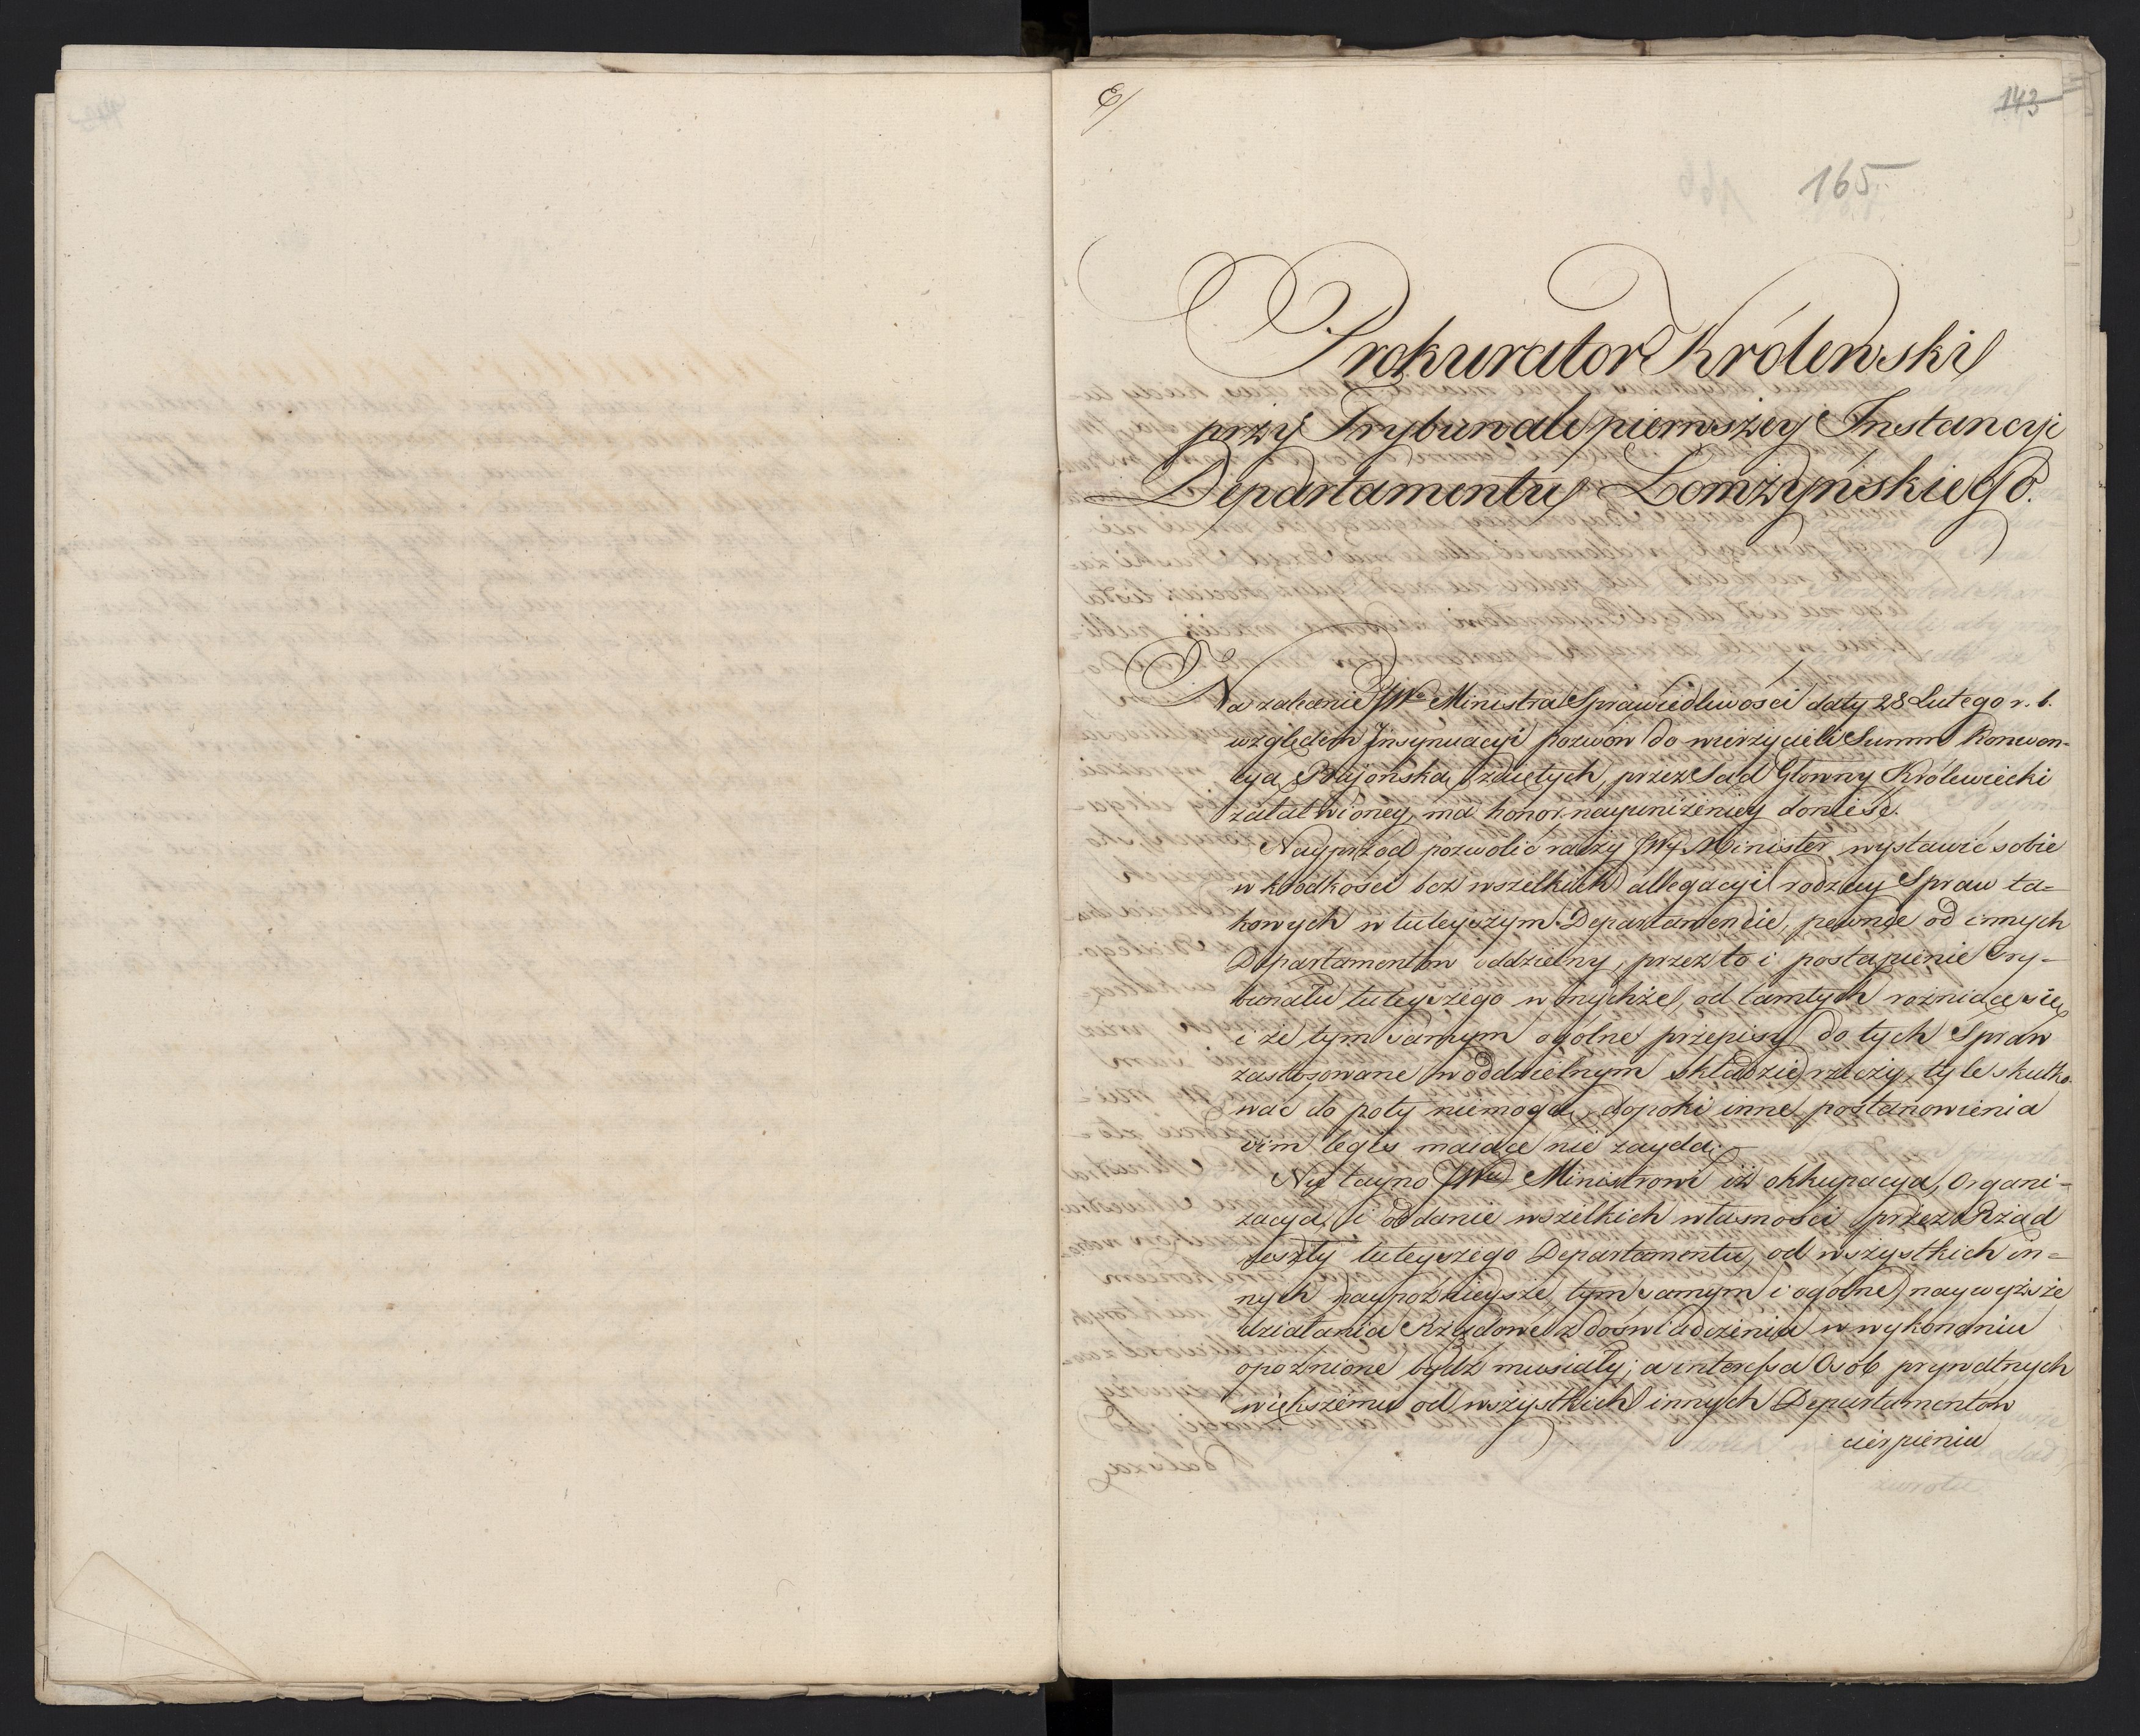 E/
143
165.
Prokurator Królewski
przy Trybunale pierwszey Instancyi
Departamentu Łomżyńskiego.
Na zalecenie JWo Ministra Sprawiedliwości daty 28 Lutego r. b.
względem Insynuacyi pozwów do wierzycieli Summ Konwen-
cyą Bajońską zaiętych, przez Sąd Głowny Królewiecki
załatwioney, ma honor nayuniżeniey donieść.
Nayprzod pozwolić raczy JWy Minister wystawić sobie
w krodkości bez wszelkich allegacyi rodzay Spraw ta-
kowych w tuteyszym Departamencie, pewnie od innych
Departamentow oddzielny, przez to i postąpienie Try-
bunału tuteyszego w onychże, od tamtych rożniące się
i że tym samym ogolne przepisy do tych Spraw
zastosowane w oddzielnym składzie rzeczy, tyle skutko-
wac do poty niemogą, dopoki inne postanowienia
vim legis maiące nie zaydą.
Nie tayno JWu Ministrowi iż okkupacya, Organi-
zacya i oddanie wszelkich własności przez Rząd
zeszły tuteyszego Departamentu, od wszystkich in-
nych naypoźnieysze, tym samym i ogolne naywyższe
działania Rządowe z doświadczenia w wykonaniu
opoźnione bydz musiały; a interessa Osob prywatnych
większemu od wszystkich innych Departamentow
cierpieniu